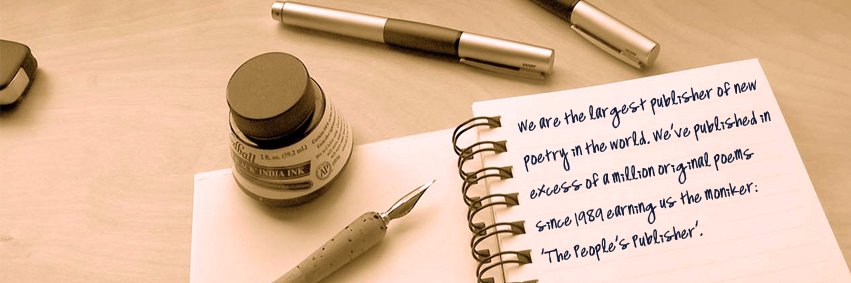 2 fl. oz. (59.2 mL)
BLACK INDIA INK
AP
We are the largest publisher of new
poetry in the world. We've published in
excess of a million original poems
since 1989 earning us the moniker:
'The People's Publisher'.